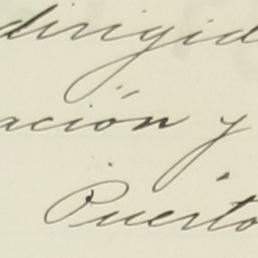 dirigid
ación y
Puerto